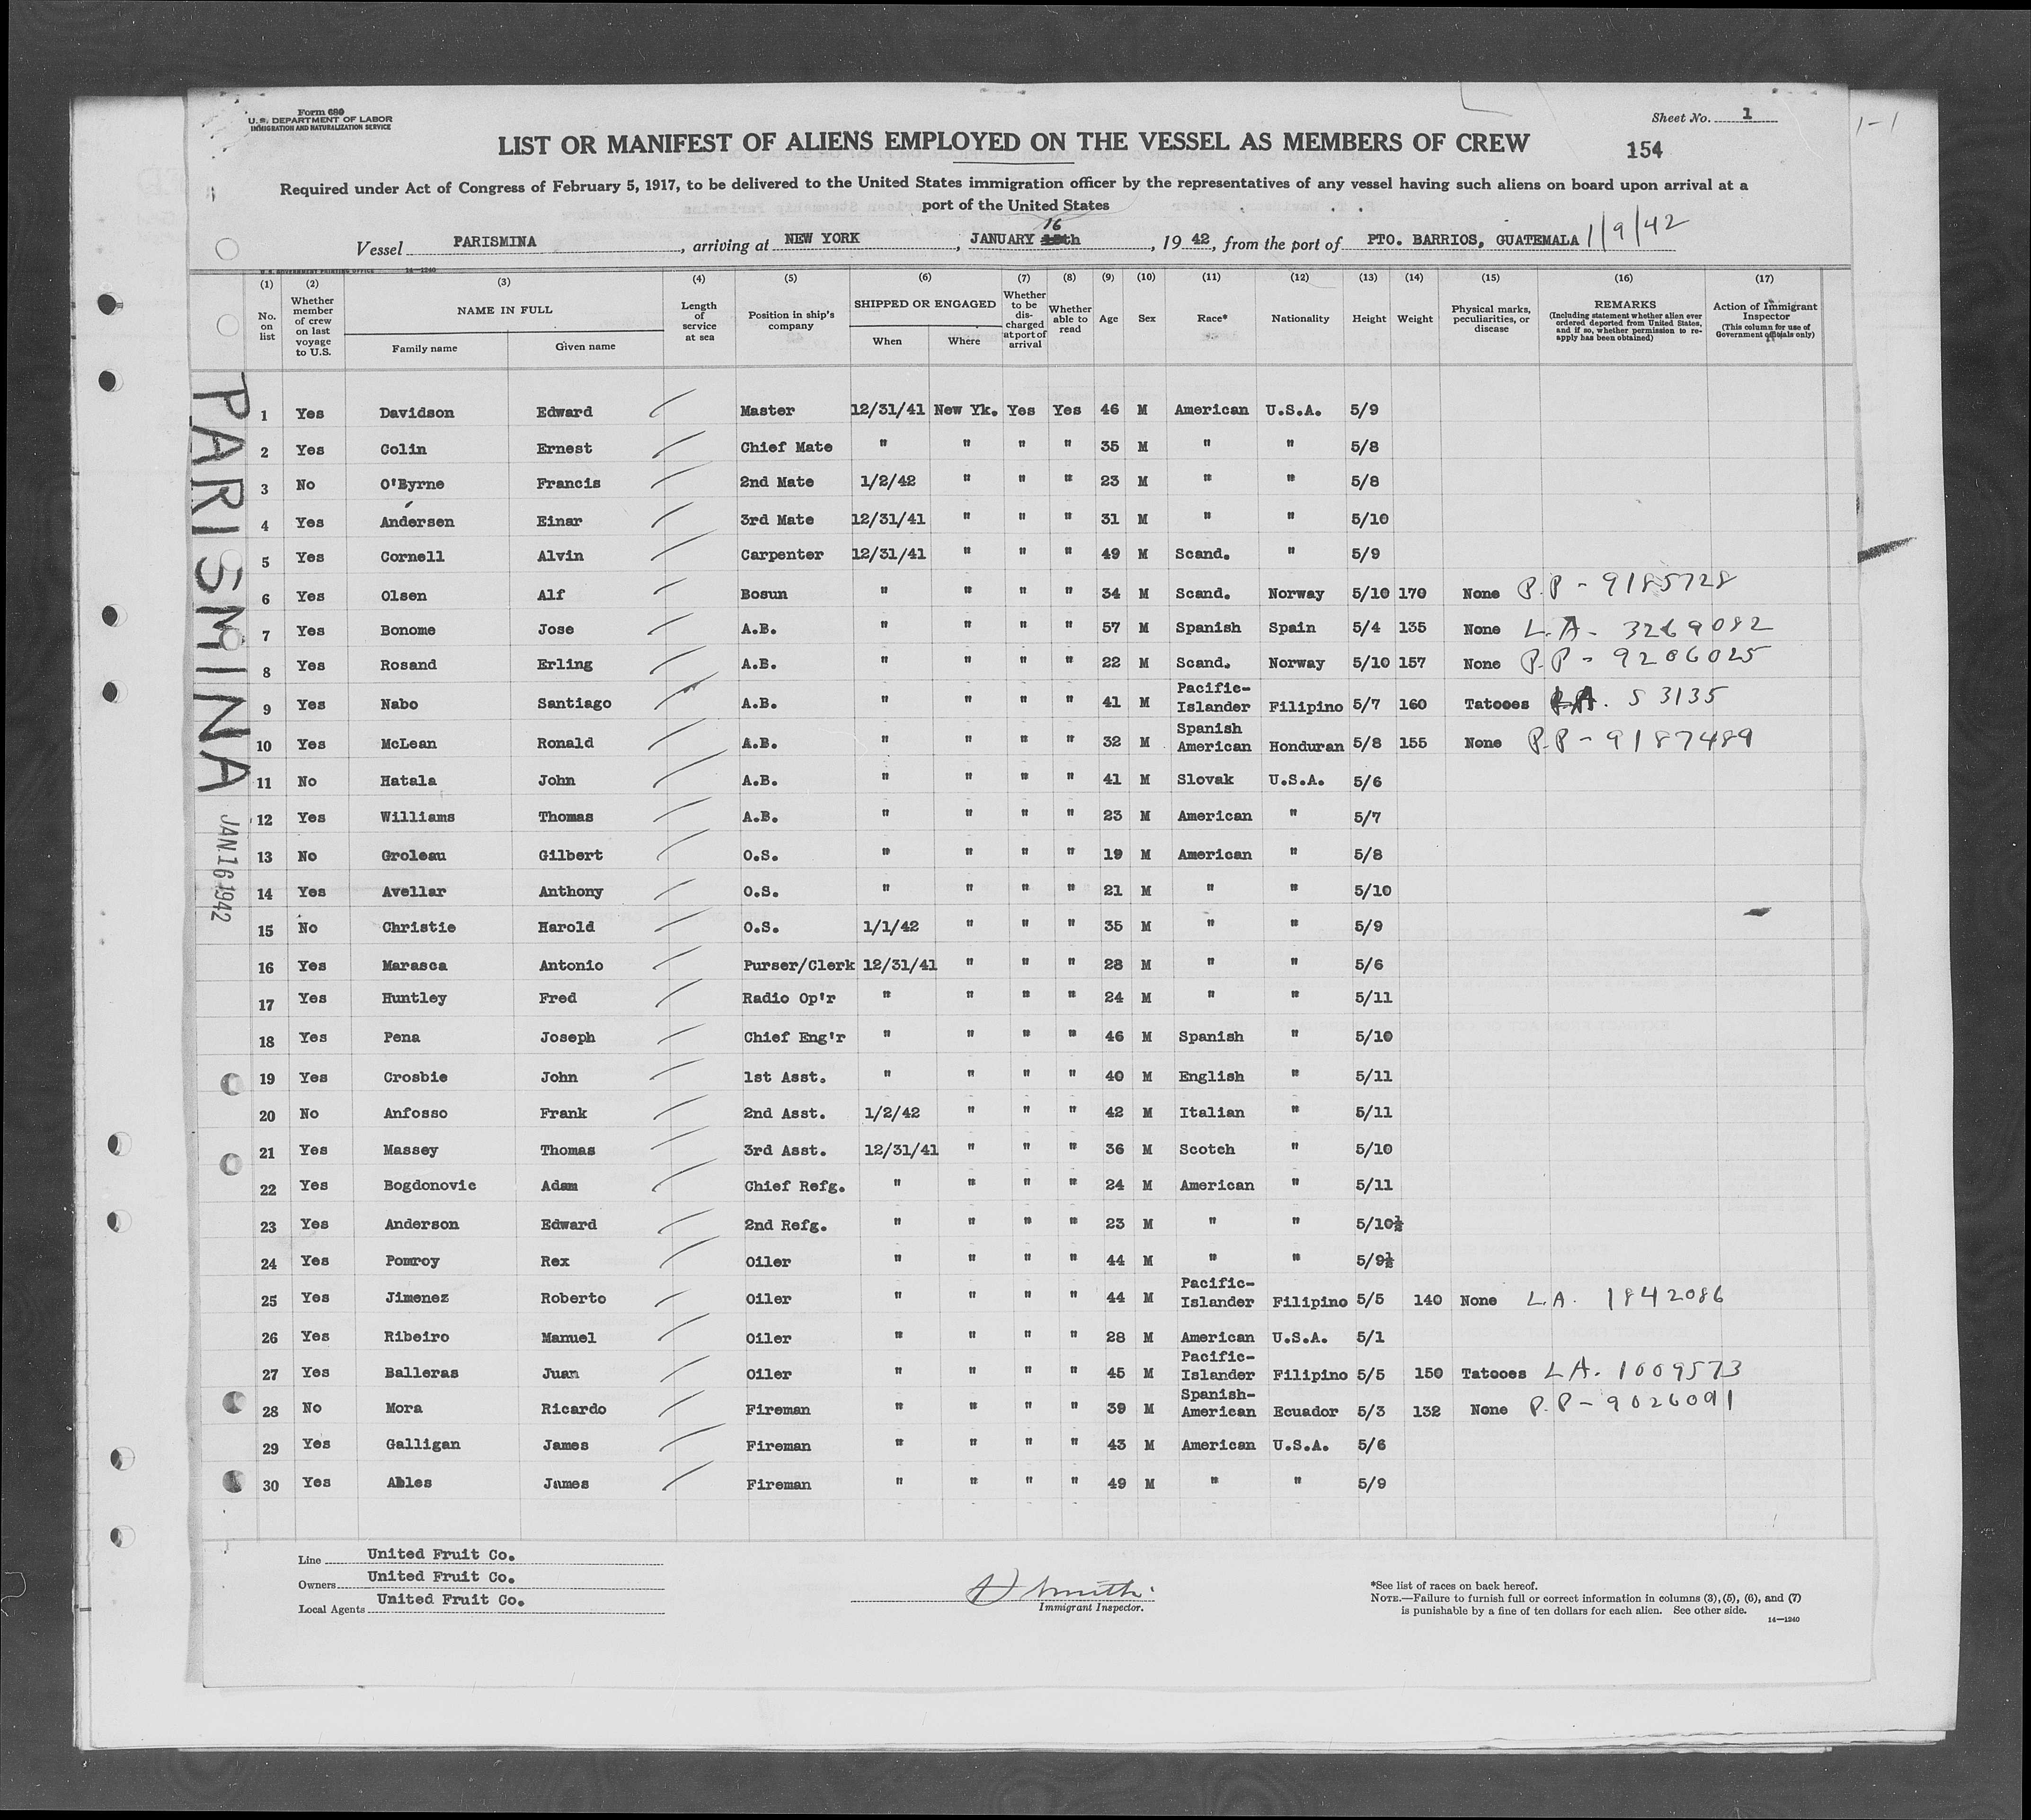 Form 680
U. S. DEPARTMENT OF LABOR
IMMIGRATION AND NATURALIZATION SERVICE
Sheet No. 1
1-1
LIST OR MANIFEST OF ALIENS EMPLOYED ON THE VESSEL AS MEMBERS OF CREW
154
Required under Act of Congress of February 5, 1917, to be delivered to the United States immigration officer by the representatives of any vessel having such aliens on board upon arrival at a
port of the United States
Vessel PARISMINA, arriving at NEW YORK, JANUARY 16 th, 1942, from the port of PTO. BARRIOS, GUATEMALA 1/9/42
U. S. GOVERNMENT PRINTING OFFICE 14-1240
(1) (2) (3) (4) (5) (6) (7) (8) (9) (10) (11) (12) (13) (14) (15) (16) (17)
No. on list
Whether member of crew on last voyage to U.S.
NAME IN FULL
Family name
Given name
Length of service at sea
Position in ship's company
SHIPPED OR ENGAGED
When
Where
Whether to be discharged at port of arrival
Whether able to read
Age
Sex
Race*
Nationality
Height
Weight
Physical marks, peculiarities, or disease
REMARKS
(Including statement whether alien ever ordered deported from United States, and if so, whether permission to re-apply has been obtained)
Action of Immigrant Inspector
(This column for use of Government officials only)
PARISMINA
JAN. 16 1942
1 Yes Davidson Edward Master 12/31/41 New Yk. Yes Yes 46 M American U.S.A. 5/9
2 Yes Colin Ernest Chief Mate " " " " 35 M " " 5/8
3 No O'Byrne Francis 2nd Mate 1/2/42 " " " 23 M " " 5/8
4 Yes Andersen Einar 3rd Mate 12/31/41 " " " 31 M " " 5/10
5 Yes Cornell Alvin Carpenter 12/31/41 " " " 49 M Scand. " 5/9
6 Yes Olsen Alf Bosun " " " " 34 M Scand. Norway 5/10 170 None P.P - 9185728
7 Yes Bonome Jose A.B. " " " " 57 M Spanish Spain 5/4 135 None L.A - 3269082
8 Yes Rosand Erling A.B. " " " " 22 M Scand. Norway 5/10 157 None P.P - 9206025
9 Yes Nabo Santiago A.B. " " " " 41 M Pacific-Islander Filipino 5/7 160 Tatooes LA. S 3135
10 Yes McLean Ronald A.B. " " " " 32 M Spanish American Honduran 5/8 155 None P.P - 9187489
11 No Hatala John A.B. " " " " 41 M Slovak U.S.A. 5/6
12 Yes Williams Thomas A.B. " " " " 23 M American " 5/7
13 No Groleau Gilbert O.S. " " " " 19 M American " 5/8
14 Yes Avellar Anthony O.S. " " " " 21 M " " 5/10
15 No Christie Harold O.S. 1/1/42 " " " 35 M " " 5/9
16 Yes Marasca Antonio Purser/Clerk 12/31/41 " " " 28 M " " 5/6
17 Yes Huntley Fred Radio Op'r " " " " 24 M " " 5/11
18 Yes Pena Joseph Chief Eng'r " " " " 46 M Spanish " 5/10
19 Yes Crosbie John 1st Asst. " " " " 40 M English " 5/11
20 No Anfosso Frank 2nd Asst. 1/2/42 " " " 42 M Italian " 5/11
21 Yes Massey Thomas 3rd Asst. 12/31/41 " " " 36 M Scotch " 5/10
22 Yes Bogdonovic Adam Chief Refg. " " " " 24 M American " 5/11
23 Yes Anderson Edward 2nd Refg. " " " " 23 M " " 5/10½
24 Yes Pomroy Rex Oiler " " " " 44 M " " 5/9½
25 Yes Jimenez Roberto Oiler " " " " 44 M Pacific-Islander Filipino 5/5 140 None L.A. 1842086
26 Yes Ribeiro Manuel Oiler " " " " 28 M American U.S.A. 5/1
27 Yes Balleras Juan Oiler " " " " 45 M Pacific-Islander Filipino 5/5 150 Tatooes LA. 1009573
28 No Mora Ricardo Fireman " " " " 39 M Spanish-American Ecuador 5/3 132 None P.P - 9026091
29 Yes Galligan James Fireman " " " " 43 M American U.S.A. 5/6
30 Yes Ables James Fireman " " " " 49 M " " 5/9
Line United Fruit Co.
Owners United Fruit Co.
Local Agents United Fruit Co.
Smith
Immigrant Inspector.
*See list of races on back hereof.
NOTE.—Failure to furnish full or correct information in columns (3), (5), (6), and (7)
is punishable by a fine of ten dollars for each alien. See other side.
14-1240